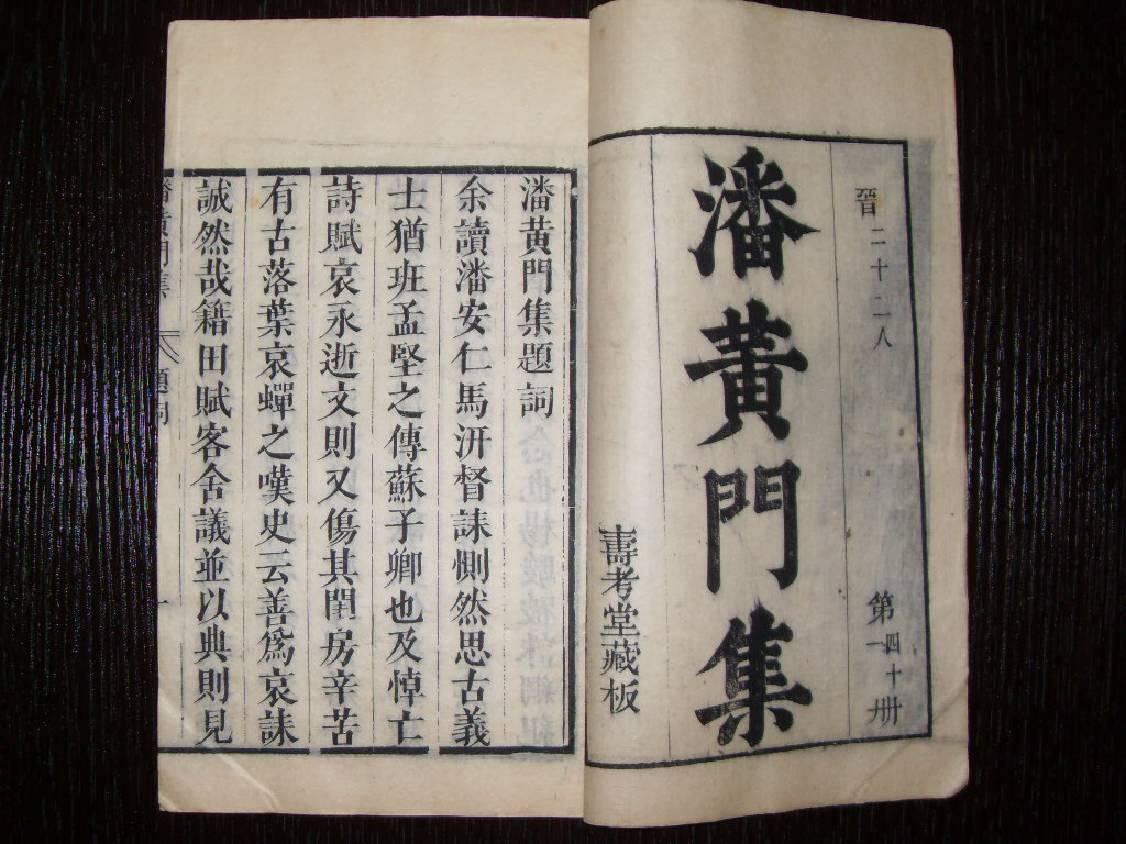 晉二十二人 第四十一册
潘黄門集
壽考堂藏板
潘黄門集題詞
余讀潘安仁馬汧督誄惻然思古義
士猶班孟堅之傳蘇子卿也及悼亡
詩賦哀永逝文則又傷其閨房辛苦
有古落葉哀蟬之嘆史云善爲哀誄
誠然哉籍田賦客舍議並以典則見
潘黄門集 題詞 一